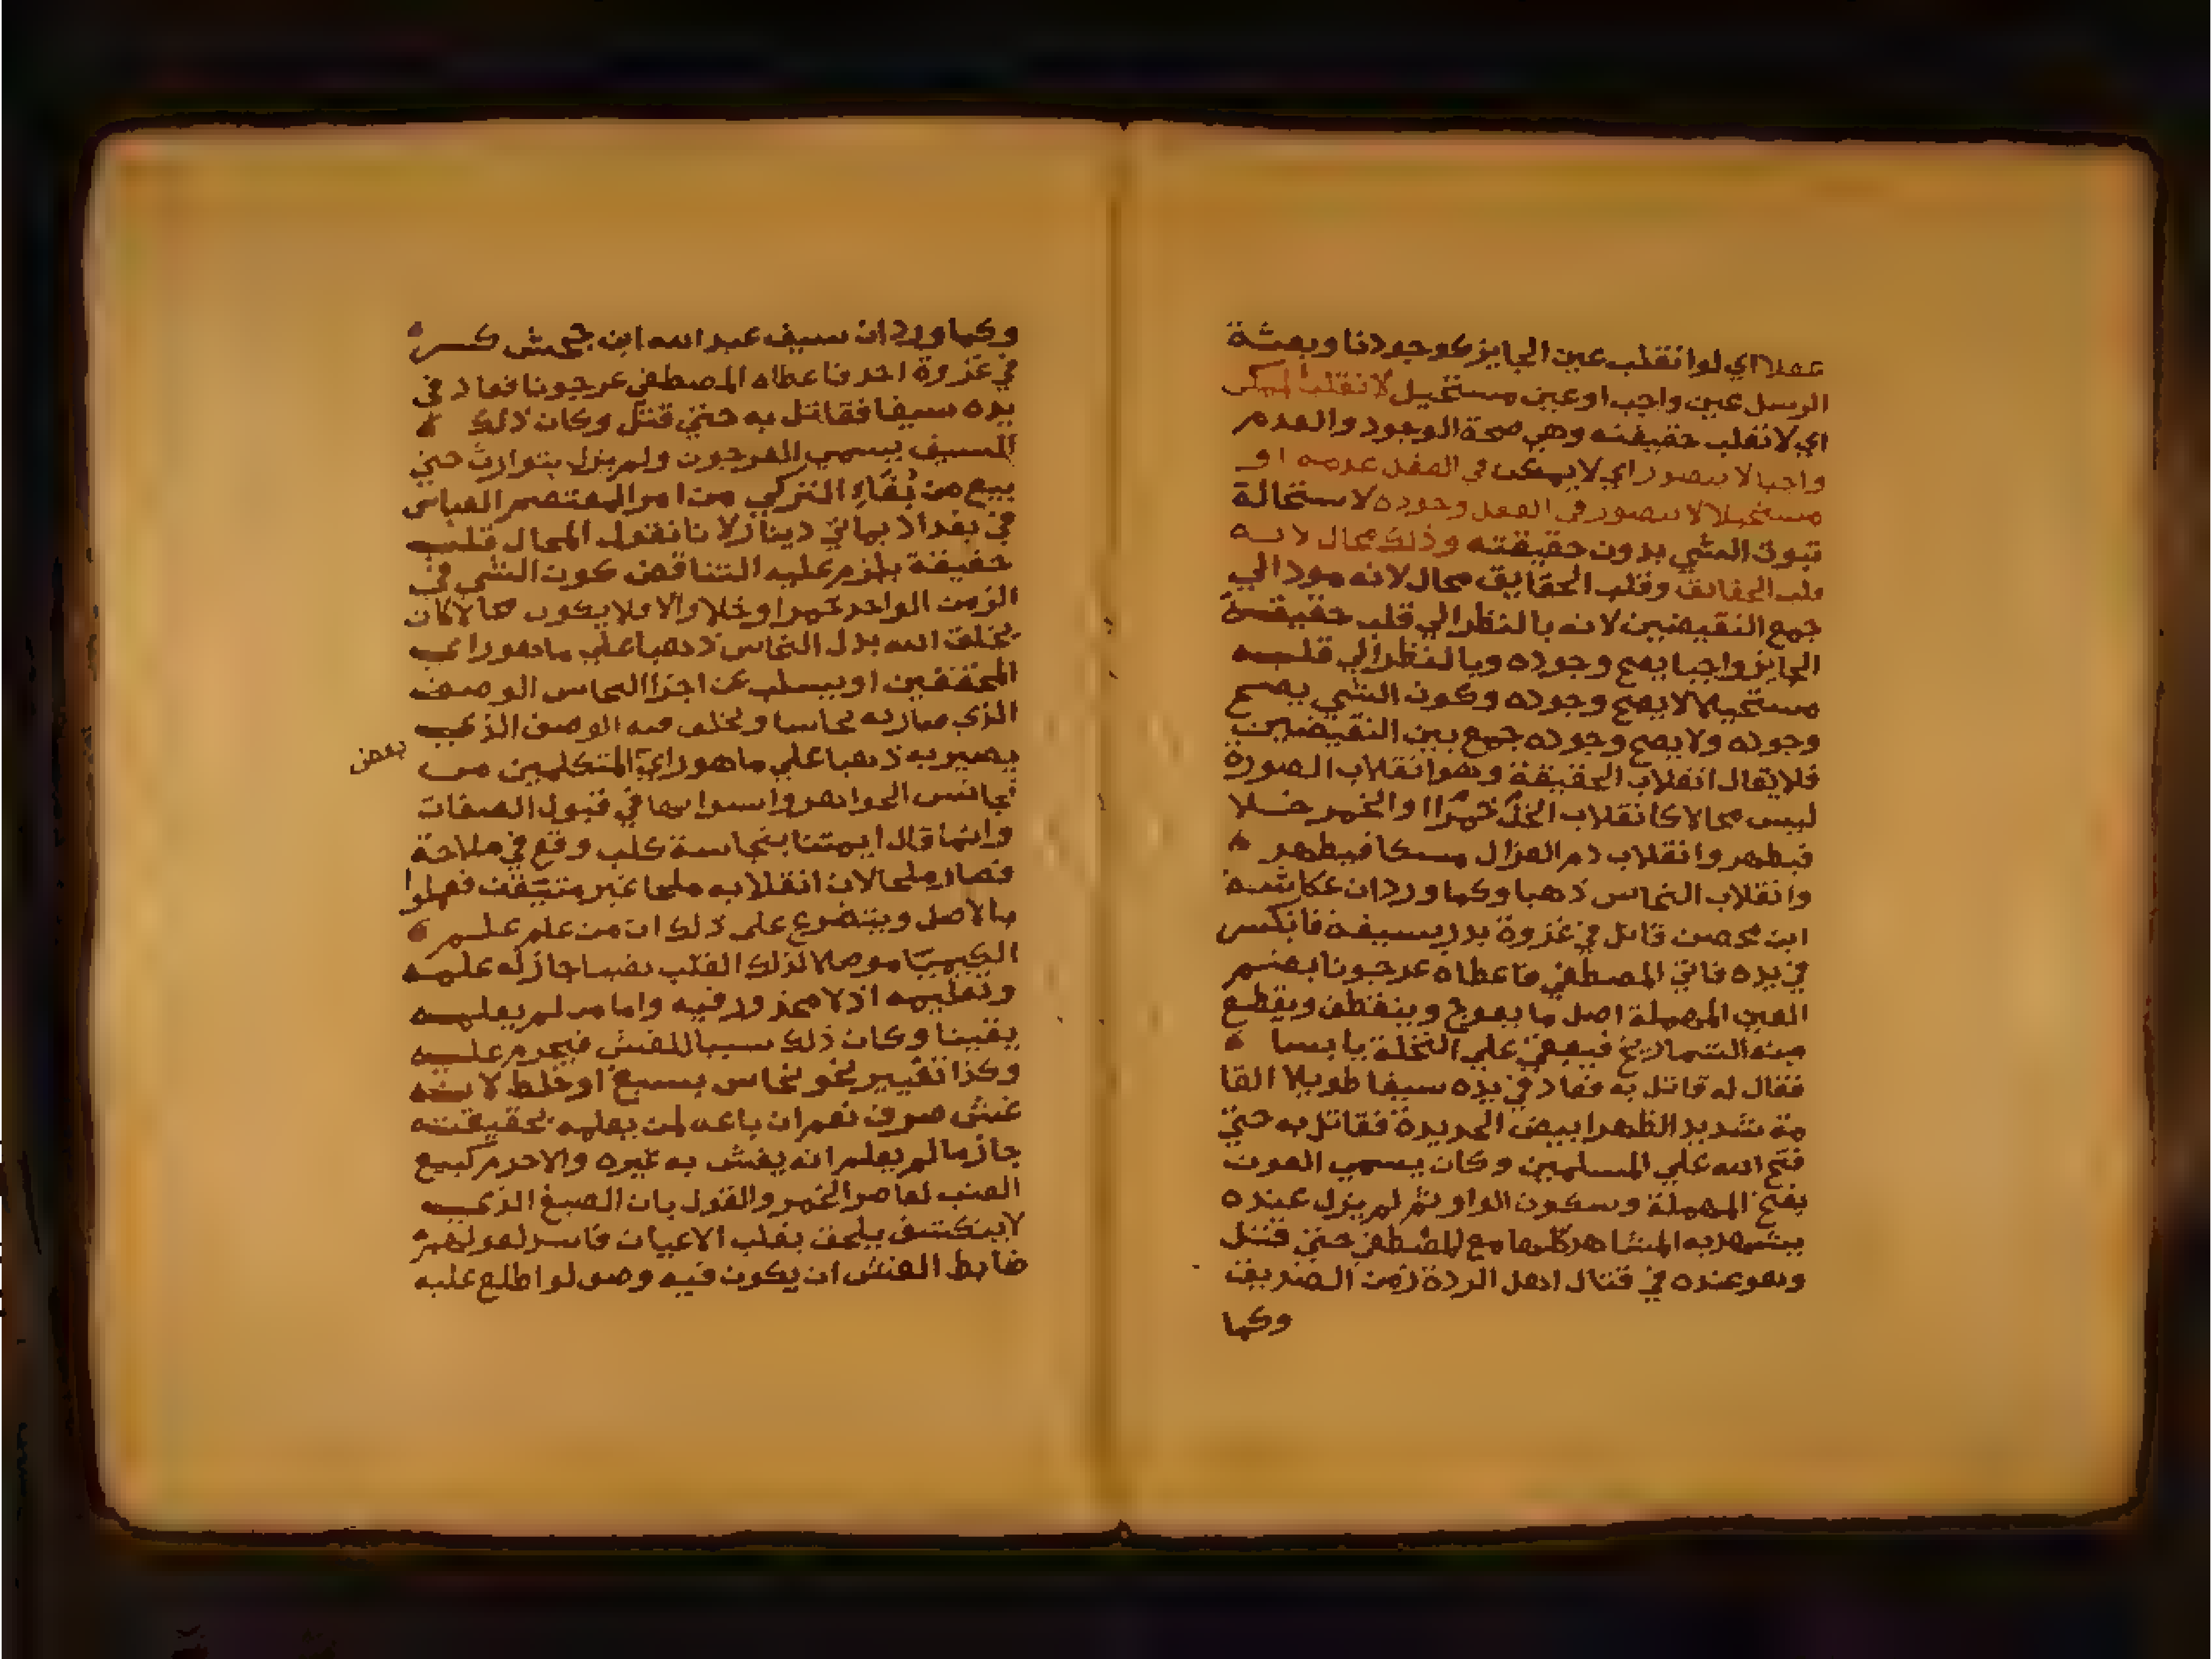 عقلا اي لوانقلب عين الجايز كوجودنا وبعثة
الرسل عين واجب او عين مستحيل لانقلب الممكن
اي لانقلب حقيقته وهي صحة الوجود والعدم
واجبا لا يتصور اي لا يمكن في العقل عدمه او
مستحيلا لا يتصور في العقل وجوده لاستحالة
ثبوت الشي بدون حقيقته وذلك محال لانه
قلب الحقايق وقلب الحقايق محال لانه مود الي
جمع النقيضين لانه بالنظر الي قلب حقيقة
الجايز واجبا يصح وجوده وبالنظر الي قلبه
مستحيلا لا يصح وجوده وكون الشي يصح
وجوده ولا يصح وجوده جمع بين النقيضين
فلا يقال انقلاب الحقيقة وهو انقلاب الصورة
ليس محالا كانقلاب الخل خمرا والخمر خلا
فيطهر وانقلاب دم الغزال مسكا فيطهر
وانقلاب النحاس ذهبا وكما ورد ان عكاشة
ابن محصن قاتل في غزوة بدر بسيفه فانكسر
في يده فاتي المصطفي فاعطاه عرجونا بضم
العين المهملة اصل ما يعوج وينعطف ويقطع
منه الشماريخ فيبقي علي النخلة يابسا
فقال له قاتل به فعاد في يده سيفا طويلا القا
مة شديد الظهر ابيض الحديدة فقاتل به حتي
فتح الله علي المسلمين وكان يسمي العون
بفتح المهملة وسكون الواو ثم لم يزل عنده
يشهد به المشاهد كلها مع المصطفي حتي قتل
وهو عنده في قتال اهل الردة زمن الصديق
وكما
وكما ورد ان سيف عبد الله ابن جحش كسر
في غزوة احد فاعطاه المصطفي عرجونا فعاد في
يده سيفا فقاتل به حتي قتل وكان ذلك
السيف يسمي العرجون ولم يزل يتوارث حتي
بيع من بُغَاءِ التركي من امر المعتصم العباس
في بغداد بماتي دينار لانا نقول المحال قلب
حقيقة يلزم عليه التناقض كون الشي في
الزمن الواحد خمرا وخلا والا فلا يكون محالا كان
يخلق الله بدل النحاس ذهبا علي ما هو راي
المحققين او يسلب عن اجزا النحاس الوصف
الذي صار به نحاسا ويخلق فيه الوصف الذي
يصير به ذهبا علي ما هو راي المتكلمين من
بعض
تجانس الجواهر واستوايها في قبول الصفات
وانما قال ايمتنا بنجاسة كلب وقع في ملاحة
فصار ملحا لان انقلابه ملحا غير متيقن فعملوا
بالاصل ويتفرع علي ذلك ان من علم علم
الكيميا موصلا لذلك القلب يقينا جاز له علمه
وتعليمه اذ لا محذور فيه واما من لم يعلمه
يقينا وكان ذلك سببا للغش فيحرم عليه
وكذا تغيير نحو نحاس بصبغ او خلط لانه
غش صرف نعم ان باعه لمن يعلمه بحقيقته
جاز ما لم يعلم انه يغش به غيره والاحرم كبيع
العنب لعاصر الخمر والقول بان الصبغ الذي
لا ينكشف يلحق بقلب الاعيان فاسد لقولهم
ضابط الغش ان يكون فيه وصف لو اطلع عليه